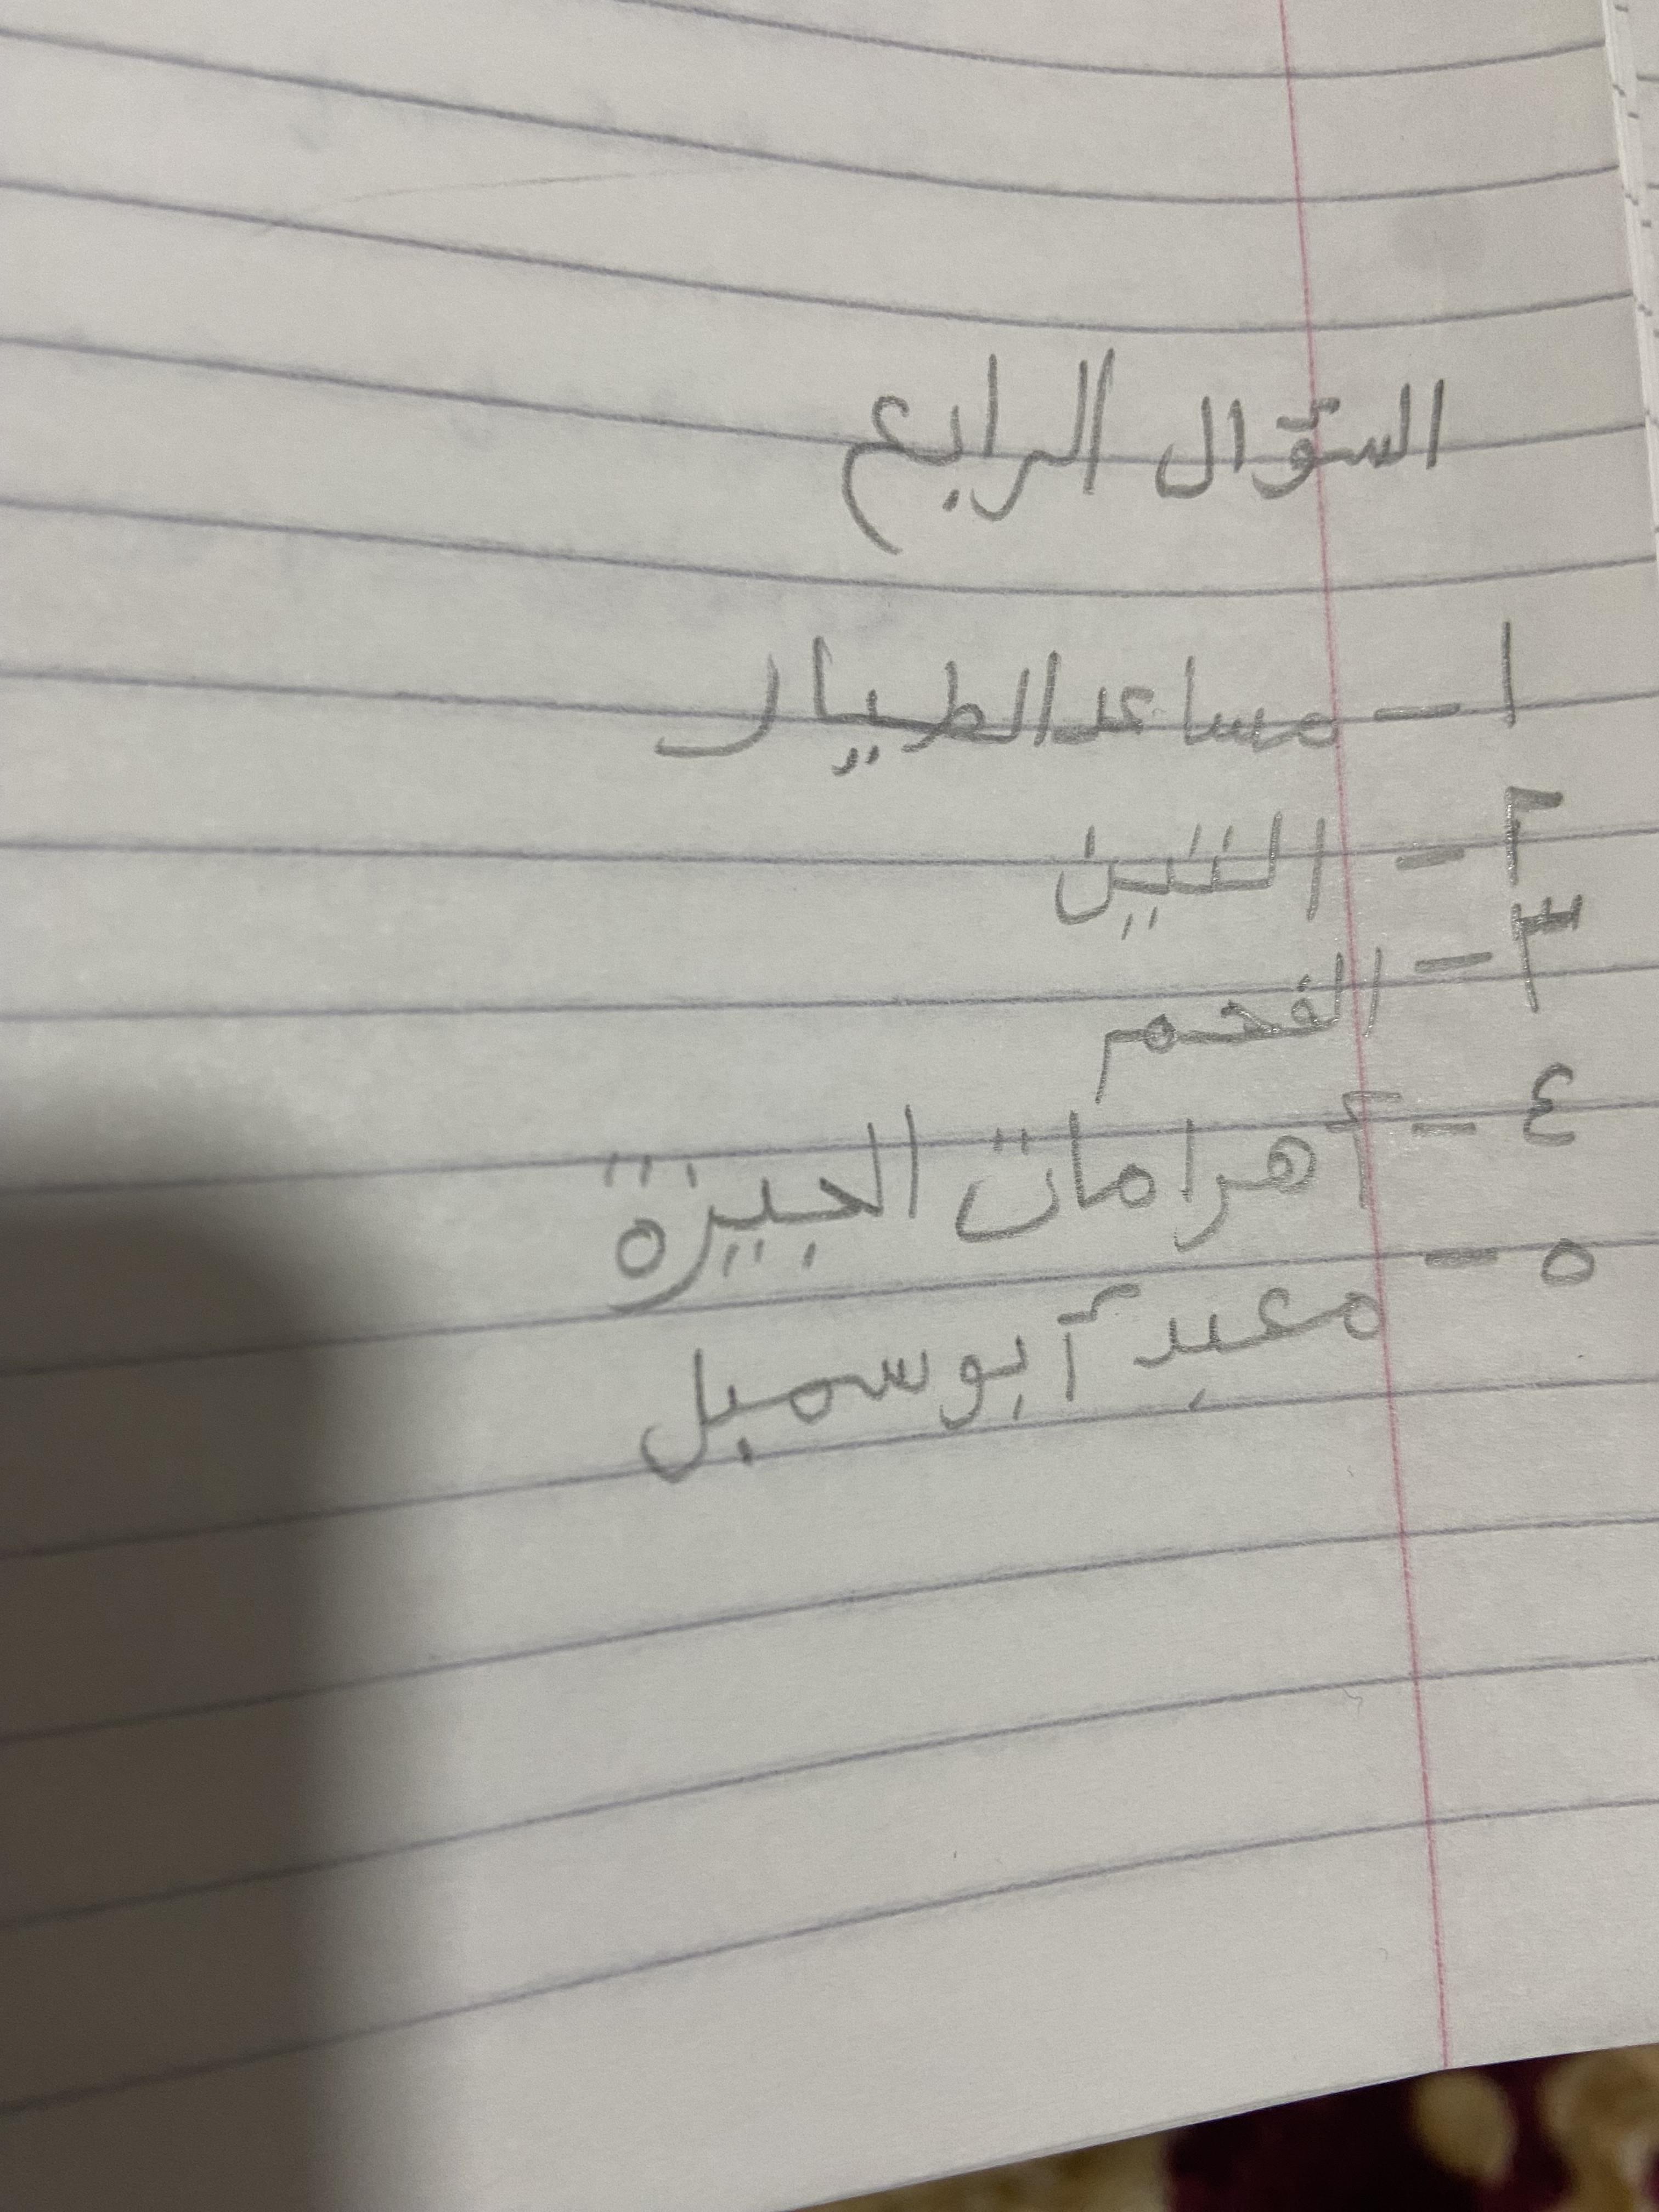 السؤال الرابع
١ - مساعد الطيار
٢ - التنين
٣ - الفحم
٤ - أهرامات الجيزة
٥ - معبد أبو سمبل